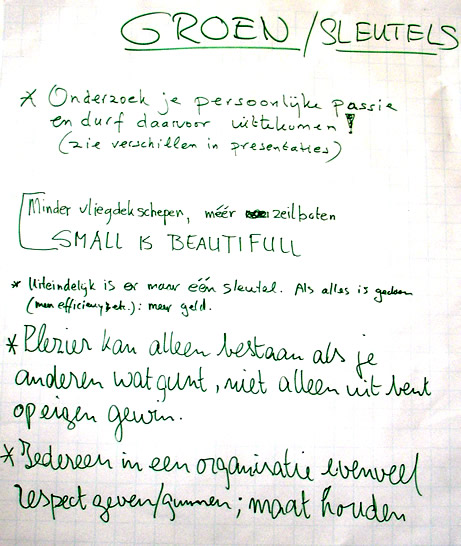 GROEN / SLEUTELS
* Onderzoek je persoonlijke passie
en durf daarvoor uittekomen!
(zie verschillen in presentaties)
Minder vliegdekschepen, méér zeilboten
SMALL IS BEAUTIFULL
* Uiteindelijk is er maar één sleutel. Als alles is gedaan
(men efficiency etc.): meer geld.
* Plezier kan alleen bestaan als je
anderen wat gunt, niet alleen uit bent
op eigen gewin.
* Iedereen in een organisatie evenveel
respect geven/gunnen; maat houden